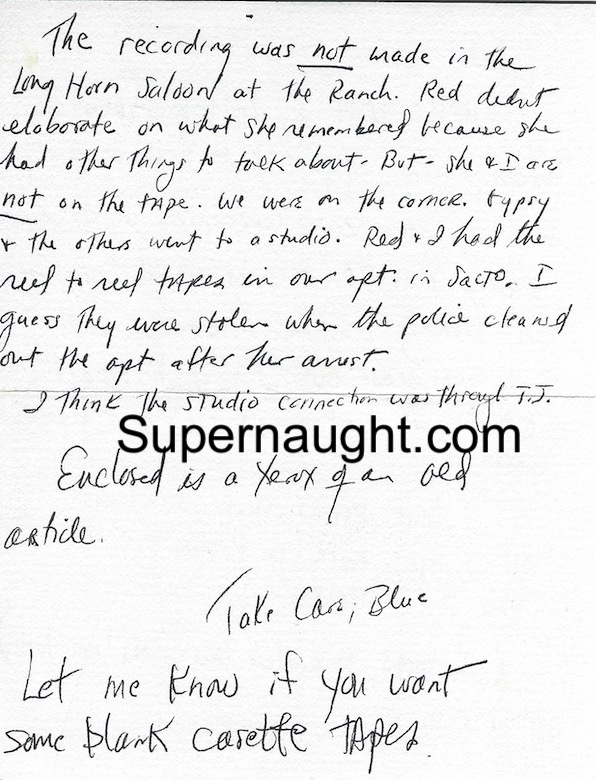 The recording was not made in the
Long Horn Saloon at the Ranch. Red didnt
elaborate on what she remembered because she
had other Things to talk about - But - she & I are
not on the tape. We were on the corner. Gypsy
& the others went to a studio. Red & I had the
reel to reel tapes in our apt. in Sacto. I
guess They were stolen when the police cleaned
out the apt after her arrest.
I Think The studio connection was through T.J.
Supernaught.com
Enclosed is a Xerox of an old
article.
Take Care, Blue
Let me know if you want
some blank casette tapes.